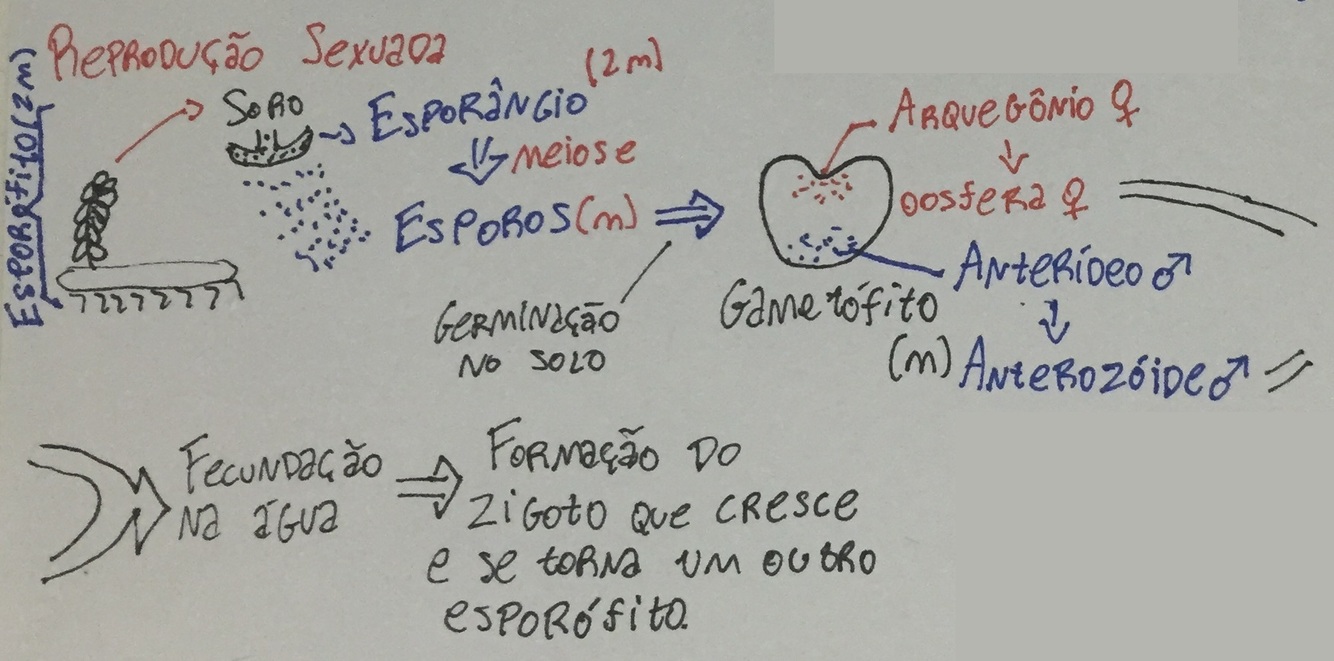 Reprodução Sexuada
Esporófito (2m)
Soro
Esporângio (2m)
meiose
Esporos (m)
Germinação
no solo
Gametófito
(m)
Arquegônio ♀
Oosfera ♀
Anterídeo ♂
Anterozóide ♂
Fecundação
na água
Formação do
zigoto que cresce
e se torna um outro
esporófito.